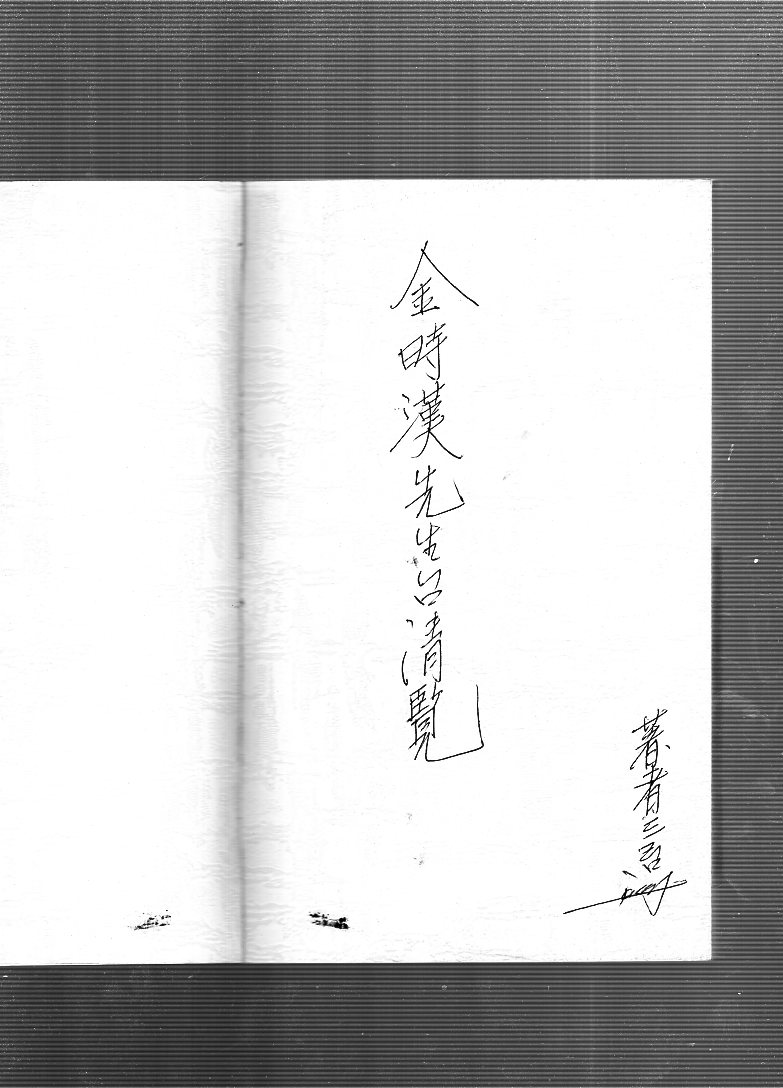 金時漢先生台淸覽
著者